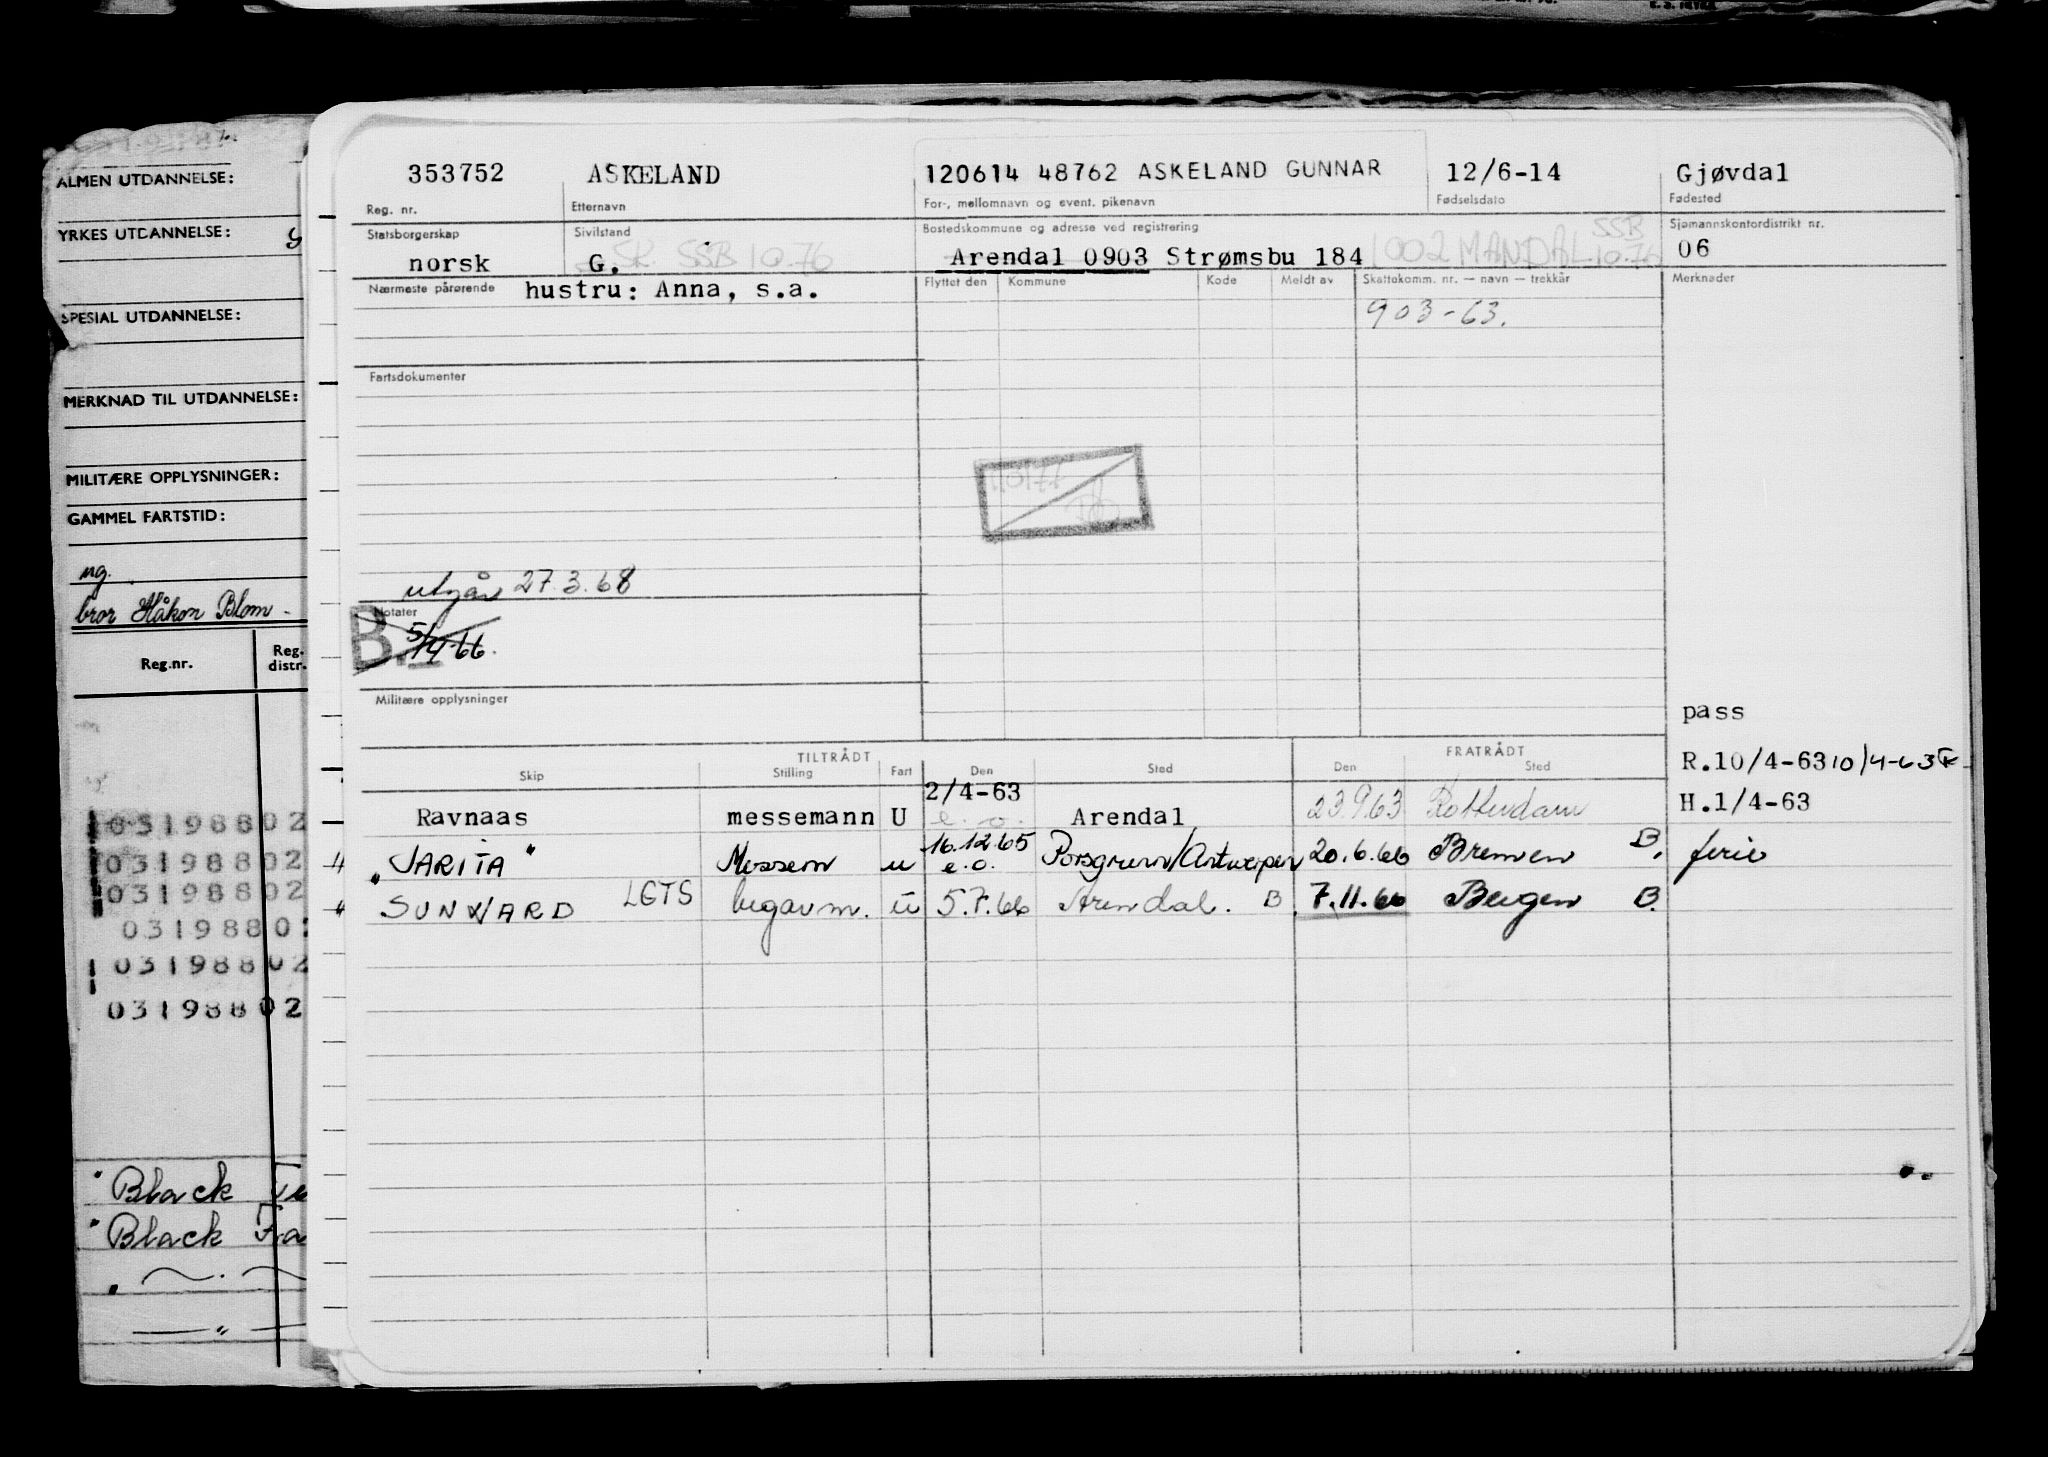 ALMEN UTDANNELSE:
YRKES UTDANNELSE:
SPESIAL UTDANNELSE:
MERKNAD TIL UTDANNELSE:
MILITÆRE OPPLYSNINGER:
GAMMEL FARTSTID:
ug.
bror Håkon Blom -
Reg.nr. Reg. distr.
03198802
03198802
03198802
0319880
03198802
03198802
"Black
"Black
353752 ASKELAND 120614 48762 ASKELAND GUNNAR 12/6-14 Gjøvdal
Reg. nr. Etternavn For-, mellomnavn og event. pikenavn Fødselsdato Fødested
Statsborgerskap Sivilstand Bostedskommune og adresse ved registrering Sjømannskontordistrikt nr.
SSB
norsk G. SK SSB 10.76 Arendal 0903 Strømsbu 184 1002 MANDAL 10.76 06
Nærmeste pårørende hustru: Anna, s.a. Flyttet den Kommune Kode Meldt av Skattekomm. nr. — navn — trekkår Merknader
903-63.
Fartsdokumenter
utgår 27.3.68
Notater
B. 5/4-66.
Militære opplysninger
pass
TILTRÅDT FRATRÅDT
Skip Stilling Fart Den Sted Den Sted
R.10/4-63 10/4-63
2/4-63
H.1/4-63
Ravnaas messemann U e.o. Arendal 23.9.63 Rotterdam
"JARITA" Messem u 16.12.65 e.o. Porsgrunn/Antwerpen 20.6.66 Bremen B. ferie
SUNWARD LGTS bugavm. u 5.7.66 Arendal. B 7.11.66 Bergen B.